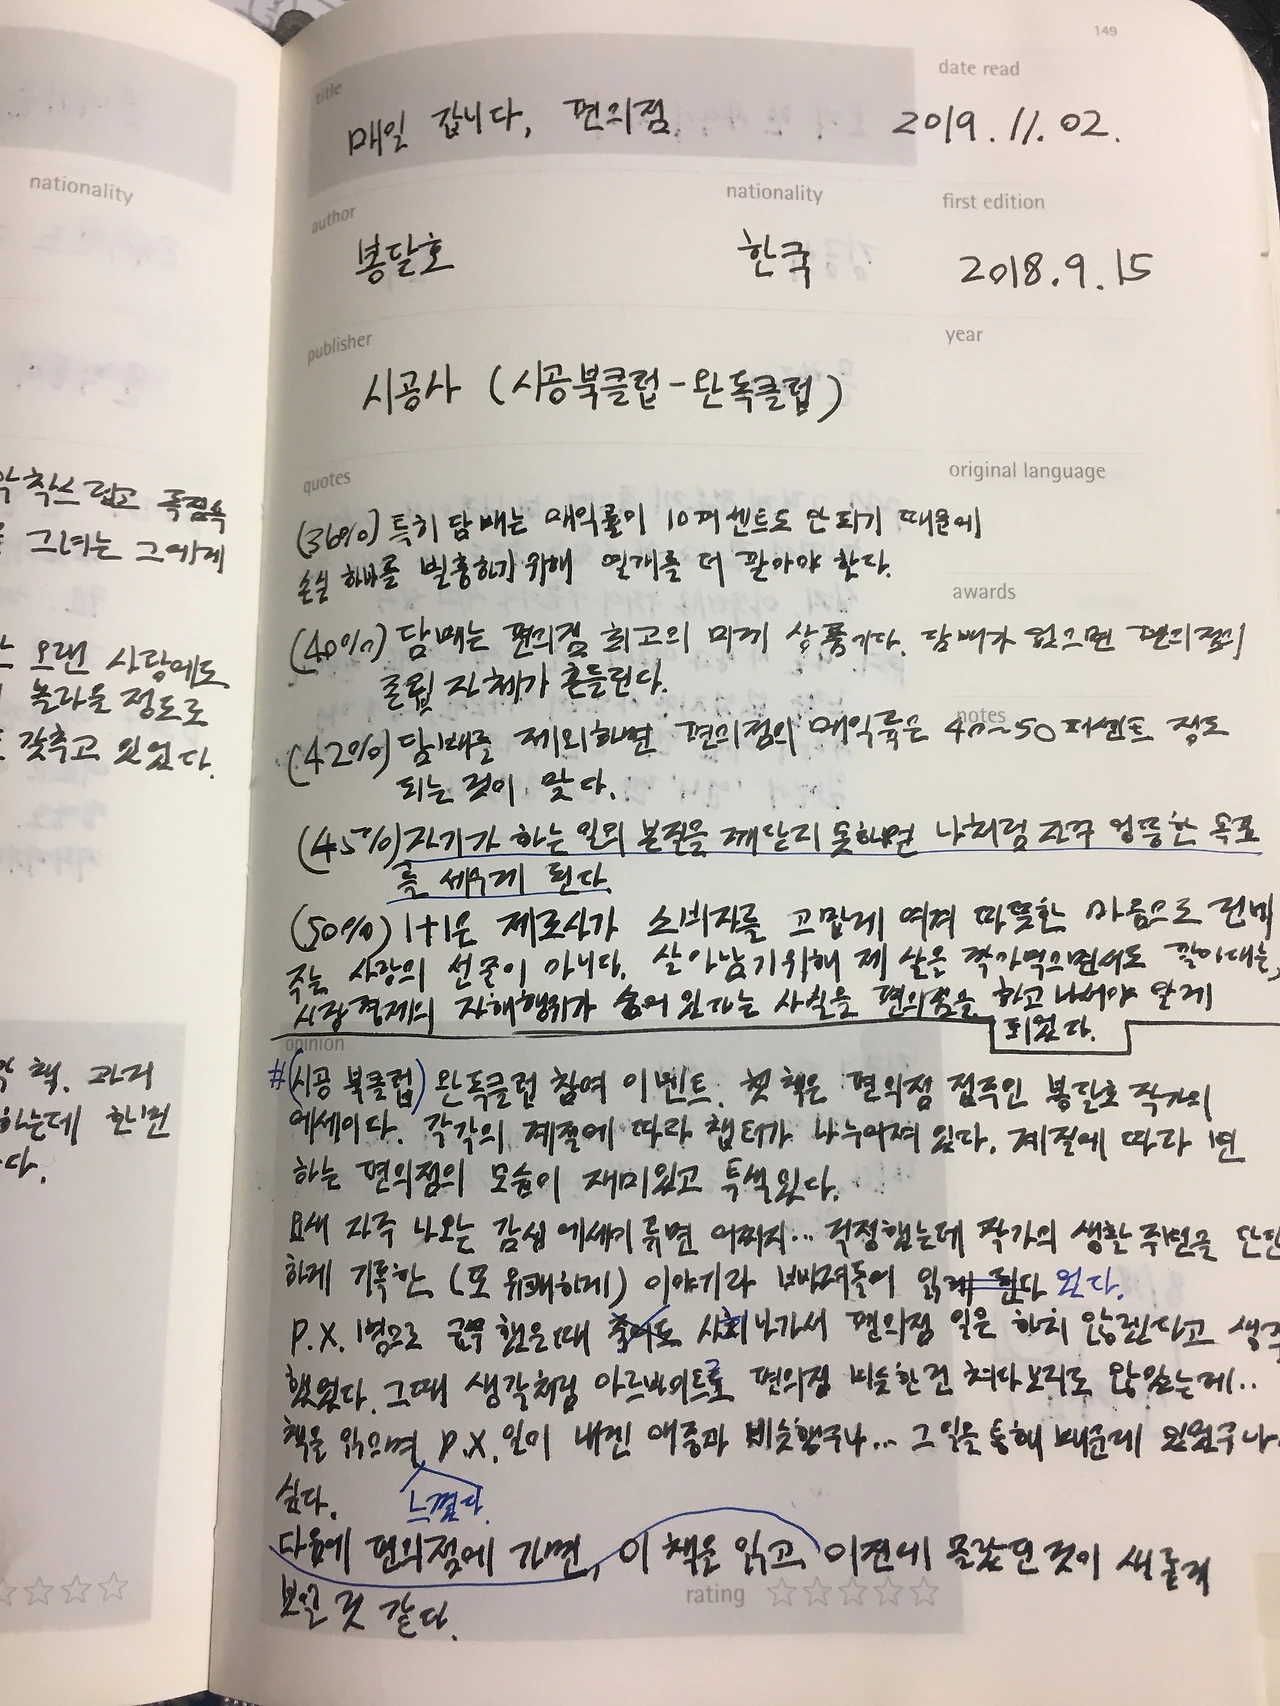 149
title
date read
매일 갑니다, 편의점
2019.11.02.
nationality
author
nationality
first edition
봉달호
한국
2018.9.15
publisher
year
시공사 (시공북클럽-완독클럽)
quotes
original language
(36%) 특히 담배는 매익률이 10퍼센트도 안되기 때문에
손실 하나를 벌충하기 위해 열개를 더 팔아야 한다.
awards
(40%) 담배는 편의점 최고의 미끼 상품이다. 담배가 없으면 편의점의
존립 자체가 흔들린다.
notes
(42%) 담배를 제외하면 편의점의 매익률은 40~50퍼센트 정도
되는 것이 맞다.
(45%) 자기가 하는 일의 본질을 깨닫지 못하면 나처럼 자꾸 엉뚱한 목표
를 세우게 된다.
(50%) 1+1은 제조사가 소비자를 고맙게 여겨 따뜻한 마음으로 건네
주는 사랑의 선물이 아니다. 살아남기위해 제 살을 깎아먹으면서도 팔아대는,
시장경제의 자해행위가 숨어 있다는 사실을 편의점을 하고 나서야 알게
되었다.
opinion
#(시공 북클럽) 완독클럽 참여 이벤트. 첫 책은 편의점 점주인 봉달호 작가의
에세이다. 각각의 계절에 따라 챕터가 나누어져 있다. 계절에 따라 변
하는 편의점의 모습이 재미있고 특색있다.
요새 자주 나오는 감성 에세이 류면 어쩌지... 걱정했는데 작가의 생활 주변을 단단
하게 기록한 (또 유쾌하게) 이야기라 읽게 된다 었다.
P.X.병으로 근무 했을때 사회나가서 편의점 일은 하지 않겠다고 생각
했었다. 그때 생각처럼 아르바이트로 편의점 비슷한건 쳐다보지도 않았는데..
책을 읽으며 P.X. 일이 내겐 애증과 비슷했구나... 그일을 통해 배운게 있었구나
싶다.
느꼈다.
다음에 편의점에 가면, 이 책을 읽고 이전에 몰랐던 것이 새롭게
보일 것 같다.
rating
악착스럽고 독점욕
그녀는 그에게
오랜 사랑에도
놀라울 정도로
갖추고 있었다.
책. 과거
하는데 한번
다.